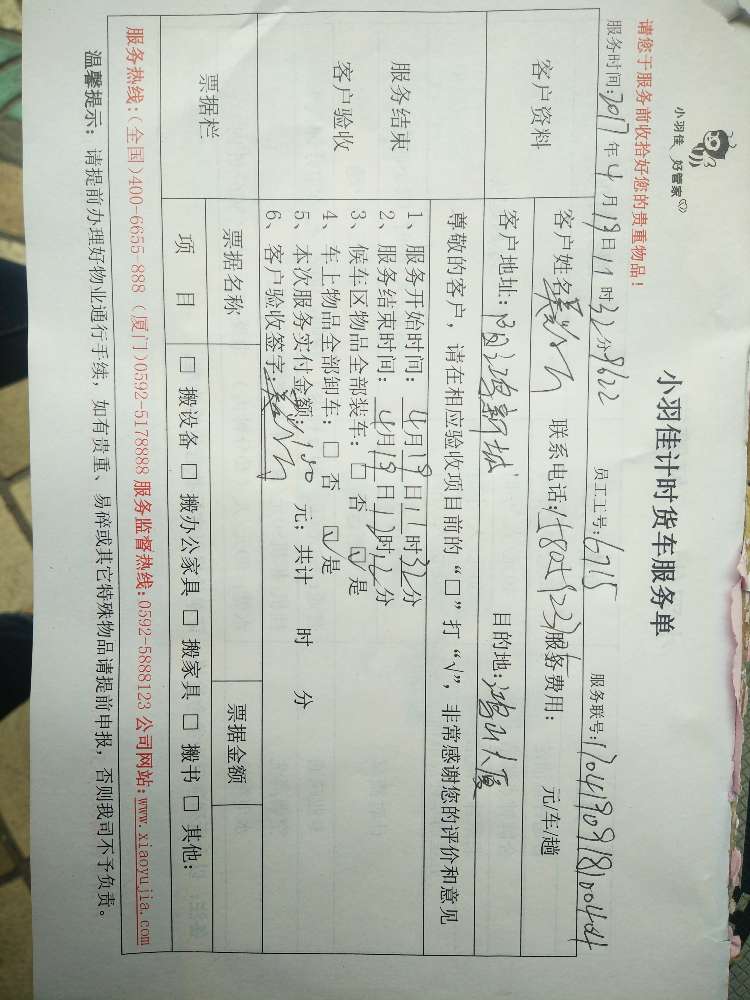 小羽佳 好管家
小羽佳计时货车服务单
请您于服务前收拾好您的贵重物品！
服务时间：2017年4月19日11时32分 8622 员工工号：6715 服务联号：
客户资料
客户姓名： 联系电话： 服务费用： 元/车/趟
客户地址： 目的地：鸿山大厦
服务结束
客户验收
尊敬的客户，请在相应验收项目前的“□”打“√”，非常感谢您的评价和意见
1、服务开始时间：4月19日11时32分
2、服务结束时间：4月19日12时12分
3、候车区物品全部装车：□ 否 ☑ 是
4、车上物品全部卸车：□ 否 ☑ 是
5、本次服务实付金额：150 元；共计 时 分
6、客户验收签字：
票据栏
票据名称 票据金额
项 目 □ 搬设备 □ 搬办公家具 □ 搬家具 □ 搬书 □ 其他：
服务热线：(全国)400-6655-888 (厦门)0592-5178888 服务监督热线：0592-5888123 公司网站：www.xiaoyujia.com
温馨提示：请提前办理好物业通行手续，如有贵重、易碎或其它特殊物品请提前申报，否则我司不予负责。